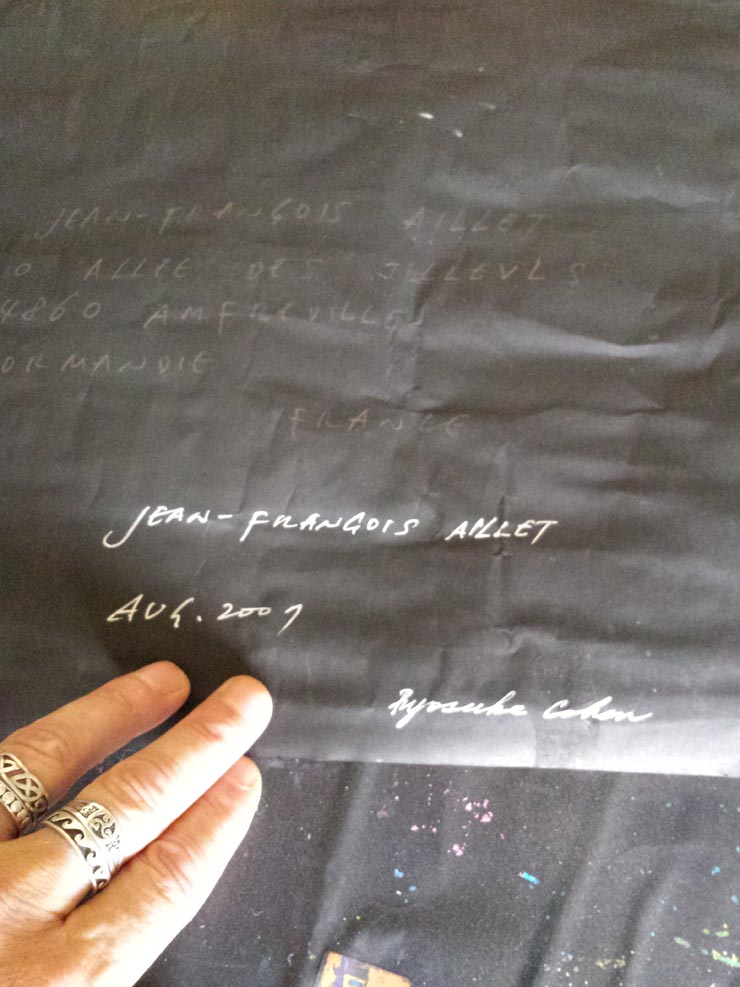 JEAN-FRANÇOIS AILLET
0 ALLÉE DES TILLEULS
4860 AMFREVILLE
ORMANDIE
FRANCE
JEAN-FRANÇOIS AILLET
AUG. 2007
Ryosuke Cohen